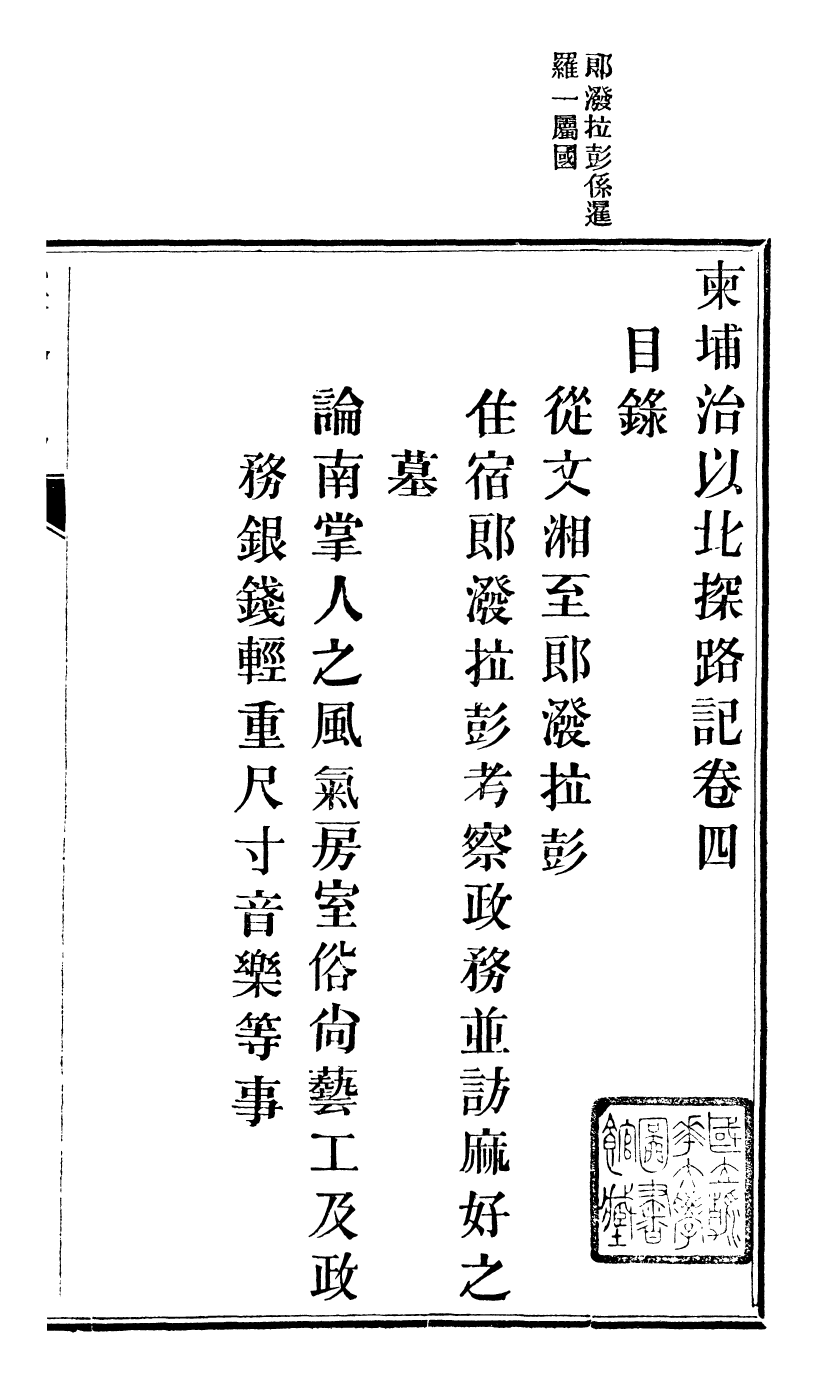 郎潑拉彭係暹
羅一屬國
柬埔治以北探路記卷四
目錄
從文湘至郎潑拉彭
住宿郎潑拉彭考察政務並訪麻好之
墓
論南掌人之風氣房室俗尙藝工及政
務銀錢輕重尺寸音樂等事
國立清
華大學
圖書
館藏